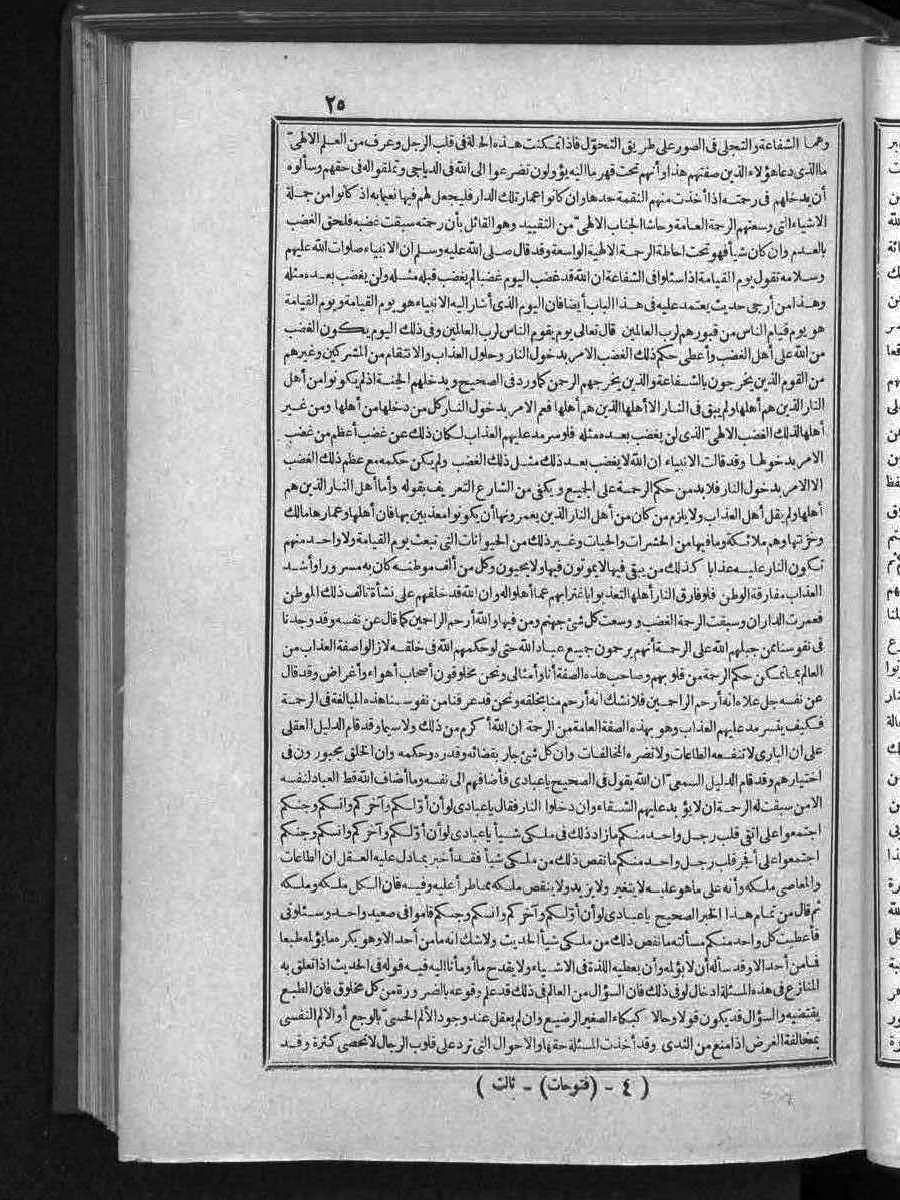 ٢٥
وهما الشفاعة والتجلى فى الصور على طريق التحوّل فاذا تمكنت هذه الحالة فى قلب الرجل وعرف من العلم الالهىّ
ما الذى دعا هؤلاء الذين صفتهم هذا وأنهم تحت قهر ما اليه يؤولون تضرعوا الى الله فى الدياجى وتملقوا له فى حقهم وسألوه
أن يدخلهم فى رحمته اذا أخذت منهم النقمة حدها وان كانوا عمار تلك الدار فليجعل لهم فيها نعيما به اذ كانوا من جملة
الاشياء التى وسعتهم الرحمة العامة وحاشا الجناب الالهىّ من التقييد وهو القائل بأن رحمته سبقت غضبه فلحق الغضب
بالعدم وان كان شيأ فهو تحت احاطة الرحمة الالهية الواسعة وقد قال صلى الله عليه وسلم ان الانبياء صلوات الله عليهم
وسلامه تقول يوم القيامة اذا سئلوا فى الشفاعة ان الله قد غضب اليوم غضبا لم يغضب قبله مثله ولن يغضب بعده مثله
وهذا من أرجى حديث يعتمد عليه فى هذا الباب أيضا فان اليوم الذى أشار اليه الانبياء هو يوم القيامة ويوم القيامة
هو يوم قيام الناس من قبورهم لرب العالمين قال تعالى يوم يقوم الناس لرب العالمين وفى ذلك اليوم يكون الغضب
من الله على أهل الغضب وأعطى حكم ذلك الغضب الامر بدخول النار وحلول العذاب والانتقام من المشركين وغيرهم
من القوم الذين يخرجون بالشفاعة والذين يخرجهم الرحمن كما ورد فى الصحيح ويدخلهم الجنة اذ لم يكونوا من أهل
النار الذين هم أهلها ولم يبق فى النار الا أهلها الذين هم أهلها فعم الامر بدخول النار كل من دخلها من أهلها ومن غير
أهلها لذلك الغضب الالهىّ الذى لن يغضب بعده مثله فلو سرمد عليهم العذاب لكان ذلك عن غضب أعظم من غضب
الامر بدخولها وقد قالت الانبياء ان الله لا يغضب بعد ذلك مثل ذلك الغضب ولم يكن حكمه مع عظم ذلك الغضب
الا الامر بدخول النار فلا بد من حكم الرحمة على الجميع ويكفى من الشارع التعريف بقوله وأما أهل النار الذين هم
أهلها ولم يقل أهل العذاب ولا يلزم من كان من أهل النار الذين يعمرونها أن يكونوا معذبين بها فان أهلها وعمارها مالك
وخزنتها وهم ملائكة وما فيها من الحشرات والحيات وغير ذلك من الحيوانات التى تبعث يوم القيامة ولا واحد منهم
تكون النار عليه عذابا كذلك من يبقى فيها لا يموتون فيها ولا يحيون وكل من ألف موطنه كان به مسرورا وأشد
العذاب مفارقة الوطن فلو فارق النار أهلها لتعذبوا باغترابهم عما أهلوا له وان الله قد خلقهم على نشأة تألف ذلك الموطن
فعمرت الداران وسبقت الرحمة الغضب ووسعت كل شئ جهنم ومن فيها والله أرحم الراحمين كما قال عن نفسه وقد وجدنا
فى نفوسنا ممن جبلهم الله على الرحمة أنهم يرحمون جميع عباد الله حتى لو حكمهم الله فى خلقه لازالوا صفة العذاب من
العالم بما تمكن حكم الرحمة من قلوبهم وصاحب هذه الصفة أنا وأمثالى ونحن مخلوقون أصحاب أهواء وأغراض وقد قال
عن نفسه جل علاه انه أرحم الراحمين فلا نشك انه أرحم منا بخلقه ونحن قد عرفنا من نفوسنا هذه المبالغة فى الرحمة
فكيف يتسرمد عليهم العذاب وهو بهذه الصفة العامة من الرحمة ان الله أكرم من ذلك ولاسيما وقد قام الدليل العقلى
على ان البارى لا تنفعه الطاعات ولا تضره المخالفات وان كل شئ جار بقضائه وقدره وحكمه وان الخلق مجبورون فى
اختيارهم وقد قام الدليل السمعىّ ان الله يقول فى الصحيح يا عبادى فأضافهم الى نفسه وما أضاف الله قط العباد لنفسه
الا من سبقت له الرحمة ان لا يؤبد عليهم الشقاء وان دخلوا النار فقال يا عبادى لو أن أوّلكم وآخركم وانسكم وجنكم
اجتمعوا على أتقى قلب رجل واحد منكم ما زاد ذلك فى ملكى شيأ يا عبادى لو أن أوّلكم وآخركم وانسكم وجنكم
اجتمعوا على أفجر قلب رجل واحد منكم ما نقص ذلك من ملكى شيأ فقد أخبر بما دل عليه العقل ان الطاعات
والمعاصى ملكه وأنه على ما هو عليه لا يتغير ولا يزيد ولا ينقص ملكه مما طرأ عليه وفيه فان الكل ملكه وملكه
ثم قال من تمام هذا الخبر الصحيح يا عبادى لو أن أوّلكم وآخركم وانسكم وجنكم قاموا فى صعيد واحد وسئلونى
فأعطيت كل واحد منكم مسألته ما نقص ذلك من ملكى شيأ الحديث ولا شك انه ما من أحد الا وهو يكره ما يؤلمه طبعا
فما من أحد الا وقد سأله أن لا يؤلمه وأن يعطيه اللذة فى الاشياء ولا يقدح ما أومأنا اليه فيه قوله فى الحديث اذا تعلق به
المنازع فى هذه المسئلة ادخال لو فى ذلك فان السؤال من العالم فى ذلك قد علم وقوعه بالضرورة من كل مخلوق فان الطبع
يقتضيه والسؤال قد يكون قولا وحالا كبكاء الصغير الرضيع وان لم يعقل عند وجود الالم الحسىّ بالوجع أو الالم النفسى
بمخالفة الغرض اذا منع من الثدى وقد أخذت المسئلة حقها والاحوال التى ترد على قلوب الرجال لا تحصى كثرة وقد
( ٤ - (فتوحات) - ثالث )